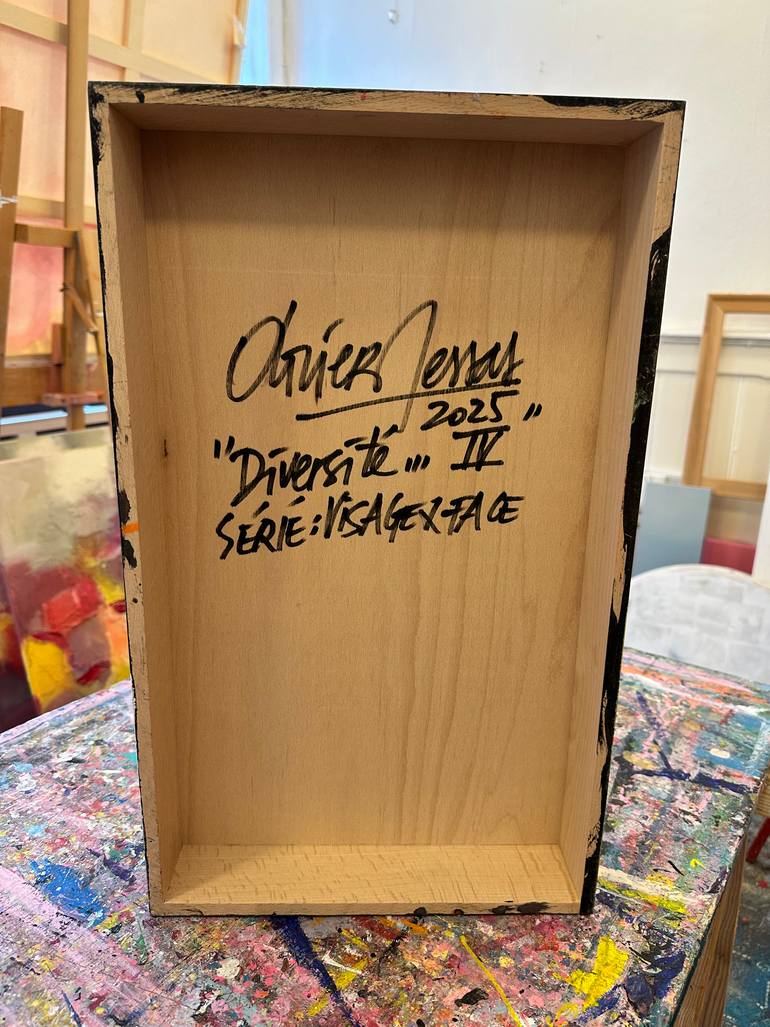 Olivier Messas
2025
"Diversité... IV"
SÉRIÉ: VISAGE X FACE